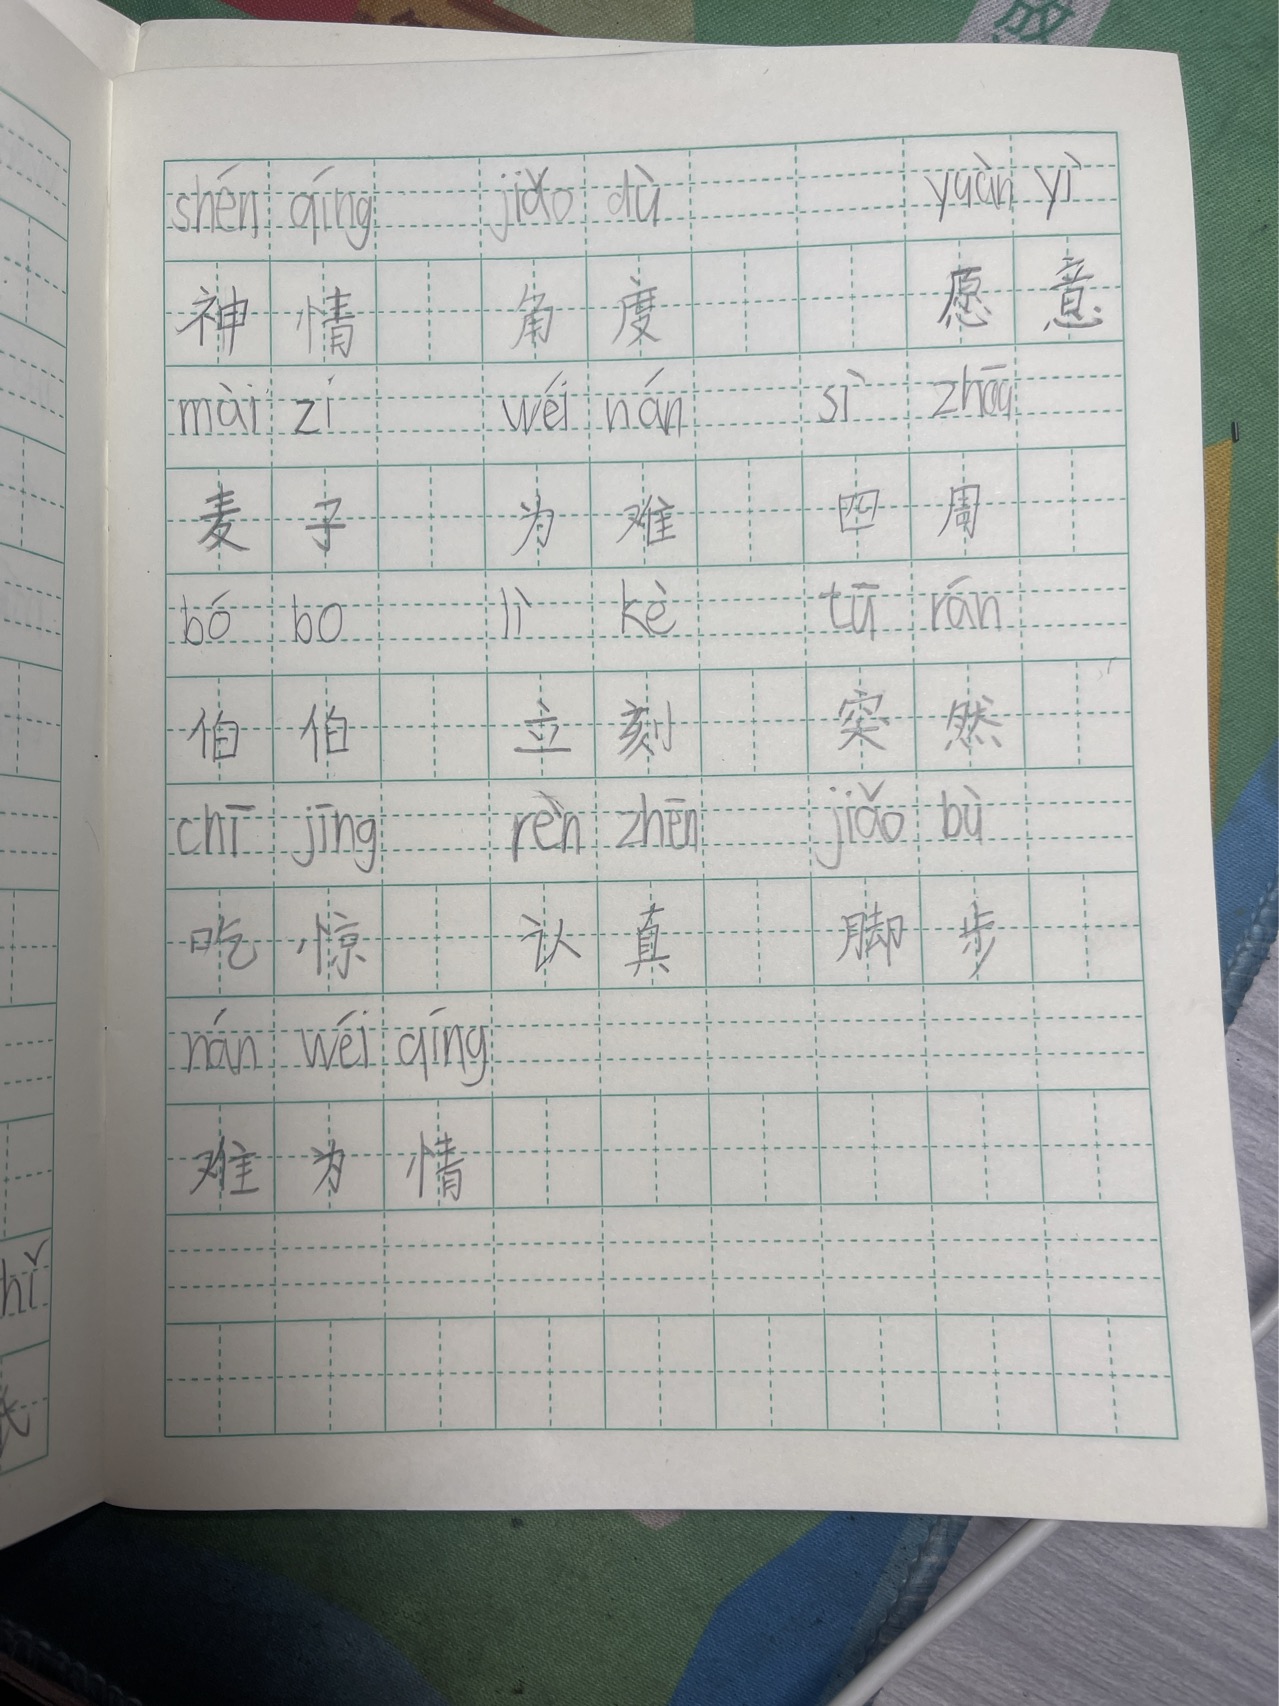 shén qíng jiǎo dù yuàn yì
神情 角度 愿意
mài zi wéi nán sì zhōu
麦子 为难 四周
bó bo lì kè tū rán
伯伯 立刻 突然
chī jīng rèn zhēn jiǎo bù
吃惊 认真 脚步
nán wéi qíng
难为情
hǐ